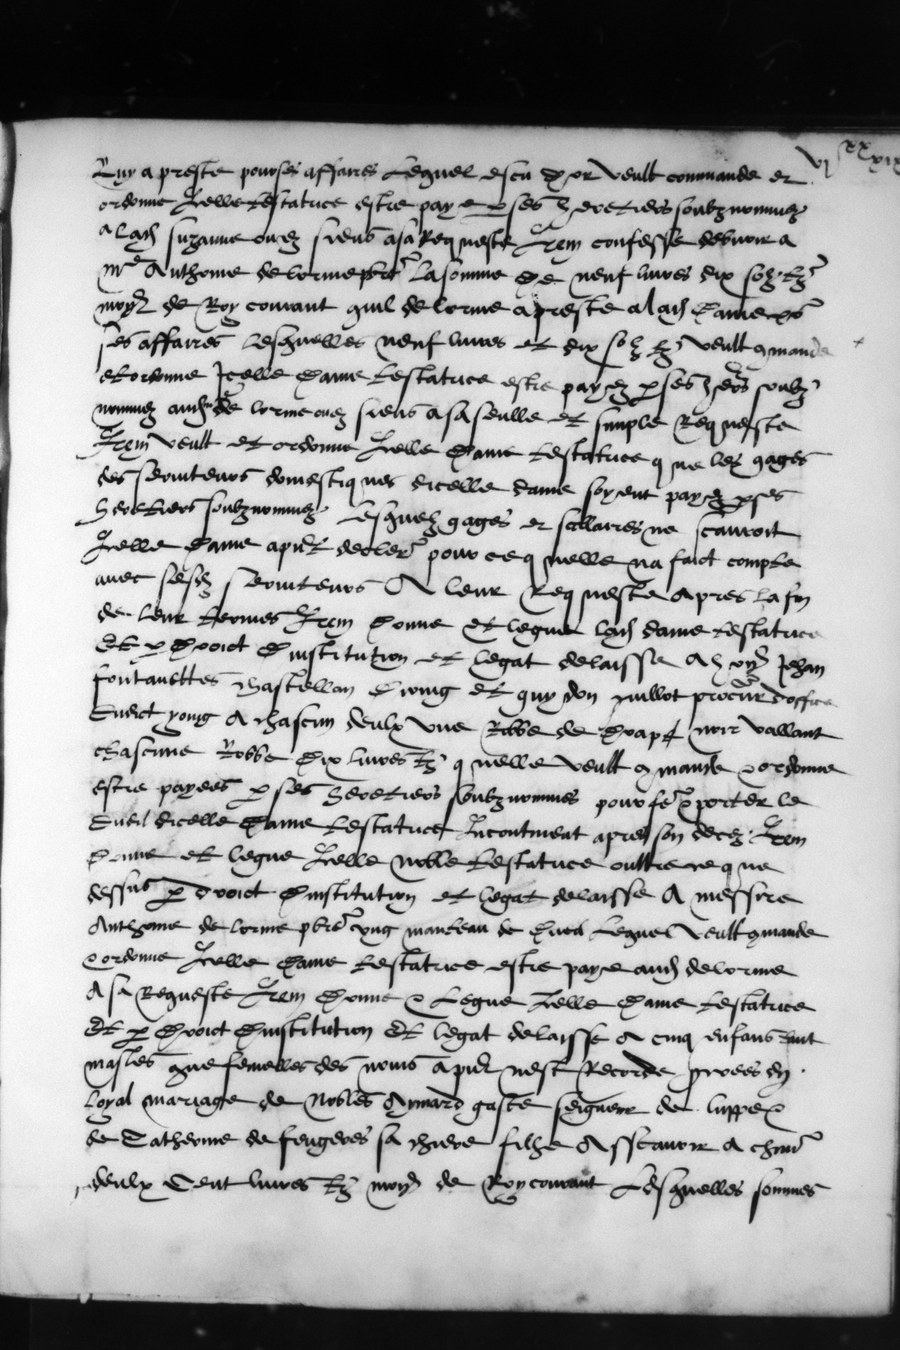 vj xx xix
Luy a preste pour ses affaires Lequel escu d or veult commande et
ordonne Icelle testatrice estre paye p ses heretiers soubz nommez
a lad suzanne ou es siens a sa Requeste Item confesse debuoir a
mre Anthoine de lorme pbre la somme de neuf liures dix solz tz
moye de Roy courant quil de lorme a preste a lad dame po
ses affaires Lesquelles neuf liures et dix solz tz veult 9mande
et ordonne Icelle dame testatrice estre payez p ses hers soubz
nommez aud de lorme ou es siens a sa seulle et simple Requeste
Item veult et ordonne Icelle dame testatrice que les gages
des seruiteurs domestiques dicelle dame soyent payez p ses
heretiers soubz nommez Lesquelz gages et sallaires ne scauroit
Icelle dame a pnt declerer pour ce quelle na faict compte
auec sesd seruiteurs A leur Requeste apres la fin
de leur termes Item donne et legue lad dame testatrice
Et p droict dinstitution et legat delaisse A Jehan
fontanettes chastellan et guydon nullot procur doffice
dudict A chascun deulx vne Robbe de drapt noir vallant
chascune Robbe dix liures tz quelle veult 9mande & ordonne
estre payees p ses heretiers soubz nommes pour fe porter le
dueil dicelle dame testatrice Incontinent apres son decez Item
donne et legue Icelle noble testatrice oultre ce que
dessus p droict dinstitution et legat delaisse A messire
Anthoine de lorme pbre vng manteau de dueil Lequel veult 9mande
& ordonne Icelle dame testatrice estre paye aud de lorme
A sa Requeste Item donne & Legue Icelle dame testatrice
Et p droict dinstitution Et legat delaisse A cinq enfans tant
masles que femelles des noms a pnt nest Recorde procrees en
loyal mariage de Nobles Aymard gaste seigneur de luppe &
de Catherine de feugeres sa chiere filhe Asscauoir A chun
deulx Cent liures tz moye de Roy courant Lesquelles sommes